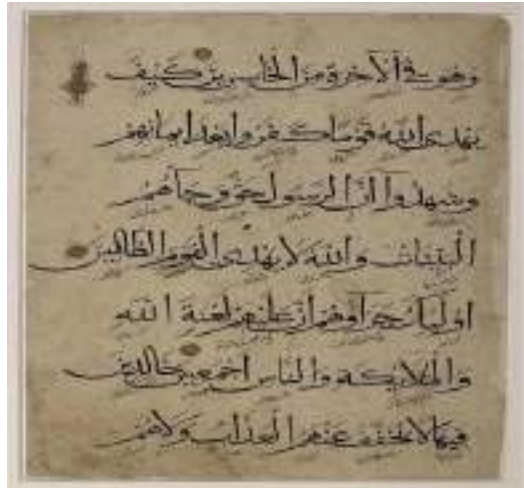 وهو في الآخرة من الخاسرين كيف
يهدي الله قوما كفروا بعد إيمانهم
وشهدوا أن الرسول حق وجاءهم
البينات والله لا يهدي القوم الظالمين
أولئك جزاؤهم أن عليهم لعنة الله
والملائكة والناس أجمعين خالدين
فيها لا يخفف عنهم العذاب ولا هم